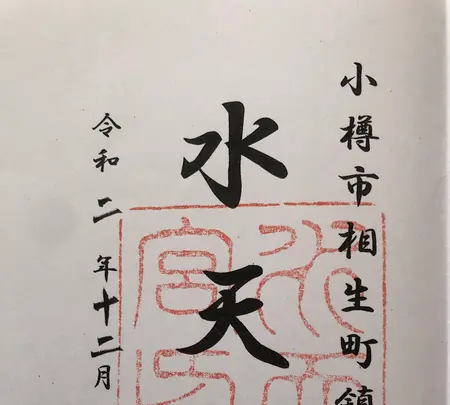 小樽市相生町鎮
水天
令和二年十二月